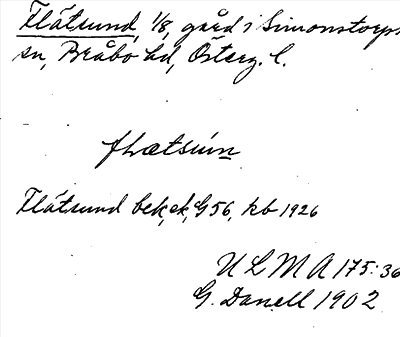 Flätsund, 1/8, gård i Simonstorps
sn, Bråbo hd, Österg. l.
flætsun
Flätsund bek, ek, G 56, kb 1926
ULMA 175:36
G. Danell 1902